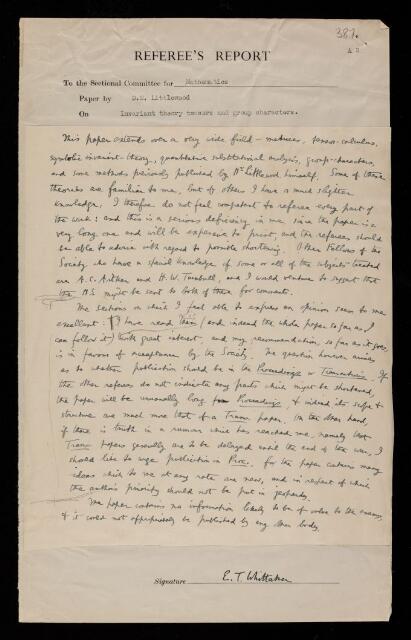 387.
A 2
REFEREE'S REPORT
To the Sectional Committee for Mathematics
Paper by D.E. Littlewood
On Invariant theory tensors and group characters.
This paper extends over a very wide field – matrices, tensor-calculus,
symbolic invariant-theory, quantitative substitutional analysis, group-characters,
and some methods previously published by Dr Littlewood himself. Some of these
theories are familiar to me, but of others I have a much slighter
knowledge; I therefore do not feel competent to referee every part of
the work: and this is a serious deficiency in me, since the paper is a
very long one and will be expensive to print, and the referees should
be able to advise with regard to possible shortening. Other Fellows of the
Society who have a special knowledge of some or all of the subjects treated
are A.C. Aitken and H.W. Turnbull, and I would venture to suggest that
the MS might be sent to both of them for comments.
The sections on which I feel able to express an opinion seem to me
excellent: I have read them (and indeed the whole paper so far as I
can follow it) with great interest, and my recommendation, so far as it goes,
is in favour of acceptance by the Society. The question however arises
as to whether publication should be in the Proceedings or Transactions. If
the other referees do not indicate any parts which might be shortened,
the paper will be unusually long for Proceedings, & indeed its scope &
structure are much more that of a Trans. paper. On the other hand,
if there is truth in a rumour which has reached me, namely that
Trans. papers generally are to be delayed until the end of the war, I
should like to urge publication in Proc. for the paper contains many
ideas which to me at any rate are new, and in respect of which
the author's priority should not be put in jeopardy.
The paper contains no information likely to be of value to the enemy,
& it could not appropriately be published by any other body.
Signature E. T. Whittaker